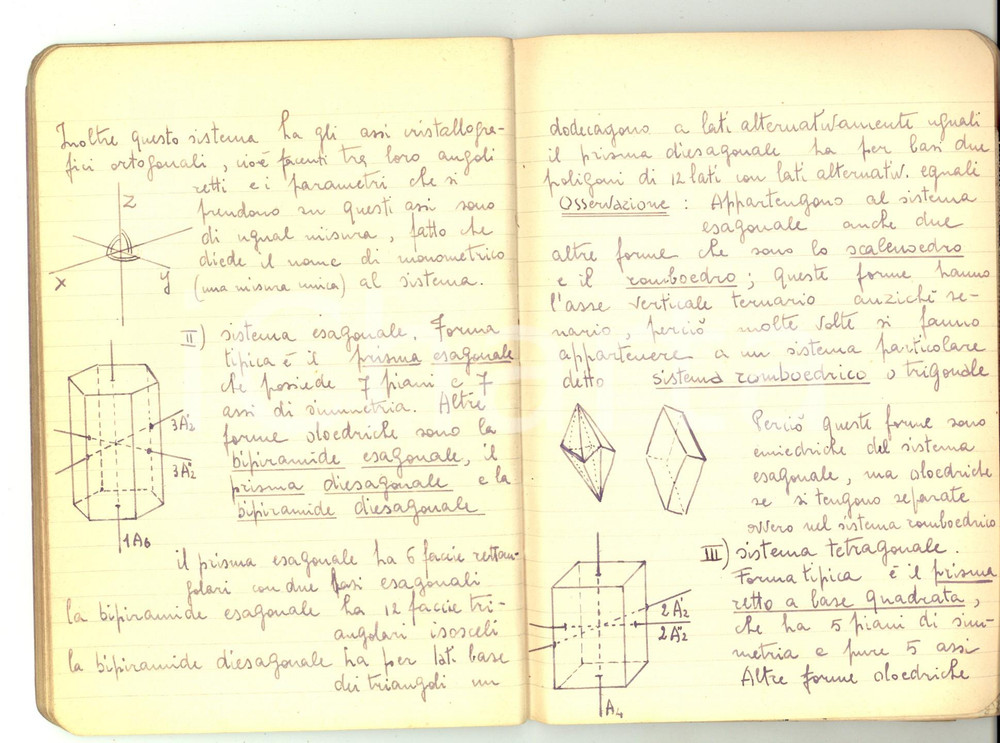 Inoltre questo sistema ha gli assi cristallogra-
fici ortogonali, cioè facenti tra loro angoli
retti e i parametri che si
prendono su questi assi sono
di ugual misura, fatto che
diede il nome di monometrico
(una misura unica) al sistema.
Z
X
y
II) sistema esagonale. Forma
tipica è il prisma esagonale
che possiede 7 piani e 7
assi di simmetria. Altre
forme oloedriche sono la
bipiramide esagonale, il
prisma diesagonale e la
bipiramide diesagonale
3A'2
3A"2
1A6
il prisma esagonale ha 6 faccie rettan-
golari con due basi esagonali
la bipiramide esagonale ha 12 faccie tri-
angolari isosceli
la bipiramide diesagonale ha per lati base
dei triangoli un
dodecagono a lati alternativamente uguali
il prisma diesagonale ha per basi due
poligoni di 12 lati con lati alternativ. eguali
Osservazione: Appartengono al sistema
esagonale anche due
altre forme che sono lo scalenoedro
e il romboedro; queste forme hanno
l'asse verticale ternario anziché se-
nario, perciò molte volte si fanno
appartenere a un sistema particolare
detto sistema romboedrico o trigonale
Perciò queste forme sono
emiedriche del sistema
esagonale, ma oloedriche
se si tengono separate
ovvero nel sistema romboedrico
III) sistema tetragonale.
Forma tipica è il prisma
retto a base quadrata,
che ha 5 piani di sim-
metria e pure 5 assi
Altre forme oloedriche
2A'2
2A"2
A4